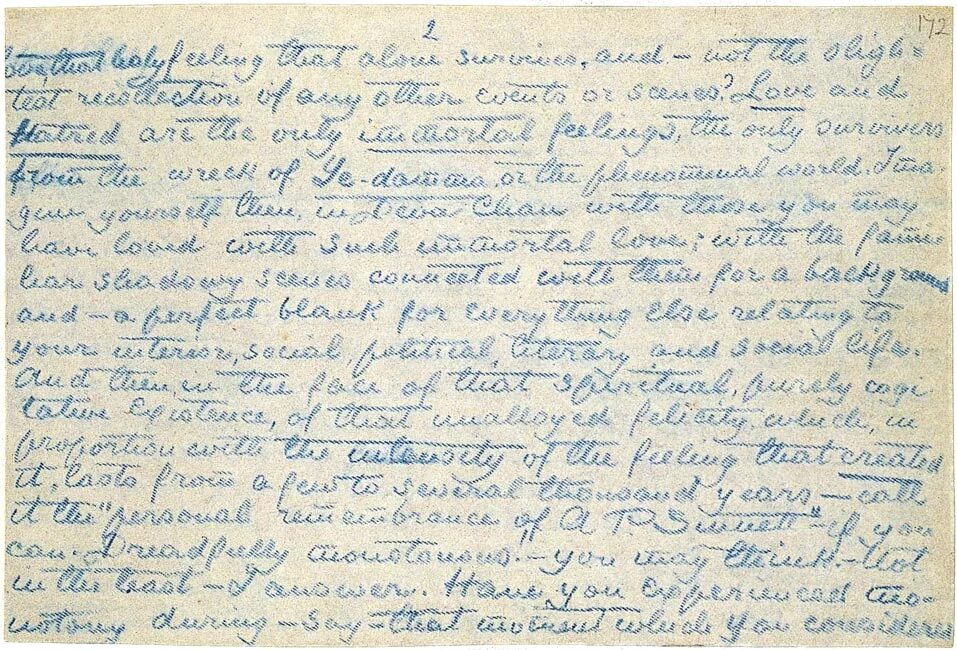 2
172
but that holy feeling that alone survives, and — not the sligh=
test recollection of any other events or scenes? Love and
Hatred are the only immortal feelings, the only survivors
from the wreck of Ye-damma, or the phenomenal world. Ima-
gine yourself then, in Deva-Chan with those you may
have loved with such immortal love; with the fami
liar shadowy scenes connected with them for a background
and — a perfect blank for everything else relating to
your interior, social, political, literary and social life.
And then, in the face of that spiritual, purely cogi
tative existence, of that unalloyed felicity which, in
proportion with the intensity of the feeling that created
it, lasts from a few to several thousand years, — call
it the "personal remembrance of A. P. Sinnett" — if you
can. Dreadfully monotonous! — you may think. — Not
in the least — I answer. Have you experienced mo-
notony during — say — that moment which you considered